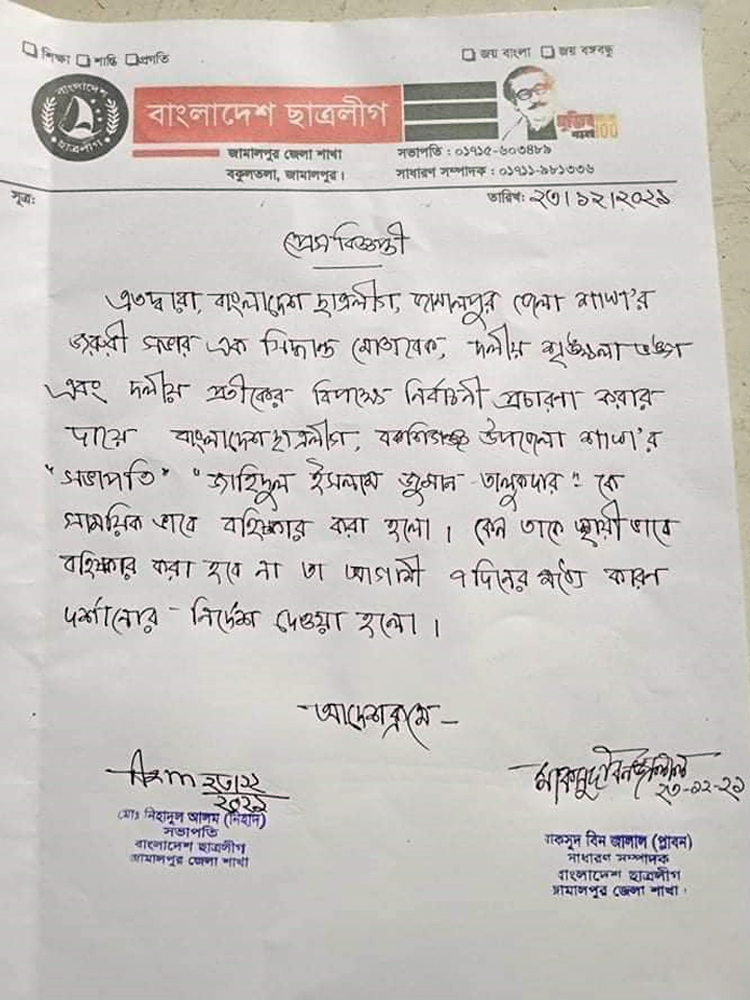 শিক্ষা শান্তি প্রগতি
জয় বাংলা জয় বঙ্গবন্ধু
বাংলাদেশ
ছাত্রলীগ
বাংলাদেশ ছাত্রলীগ
মুজিব
100
জামালপুর জেলা শাখা
বকুলতলা, জামালপুর।
সভাপতি : ০১৭১৫-৬০৩৪৮৯
সাধারণ সম্পাদক : ০১৭১১-৯৮১৩৩৬
সূত্র:
তারিখ: ২৩/১২/২০২১
প্রেস বিজ্ঞপ্তী
এতদ্বারা, বাংলাদেশ ছাত্রলীগ, জামালপুর জেলা শাখা'র
জরুরী সভার এক সিদ্ধান্ত মোতাবেক, দলীয় শৃঙ্খলা ভঙ্গ
এবং দলীয় প্রতীকের বিপক্ষে নির্বাচনী প্রচারণা করার
দায়ে বাংলাদেশ ছাত্রলীগ, বকশিগঞ্জ উপজেলা শাখা'র
"সভাপতি" "জাহিদুল ইসলাম জুমান তালুকদার" কে
সাময়িক ভাবে বহিষ্কার করা হলো। কেন তাকে স্থায়ী ভাবে
বহিষ্কার করা হবে না তা আগামী ৭ দিনের মধ্যে কারণ
দর্শানোর নির্দেশ দেওয়া হলো।
-আদেশক্রমে-
২৩/১২
২০২১
মোঃ নিহাদুল আলম (নিহাদ)
সভাপতি
বাংলাদেশ ছাত্রলীগ
জামালপুর জেলা শাখা
মাকসুদ বিন জালাল
২৩-১২-২১
মাকসুদ বিন জালাল (প্লাবন)
সাধারণ সম্পাদক
বাংলাদেশ ছাত্রলীগ
জামালপুর জেলা শাখা।